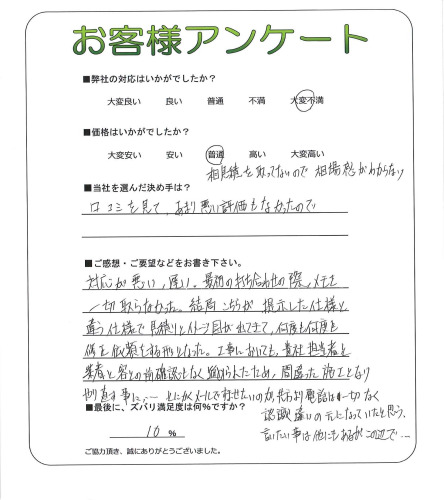 お客様アンケート
■弊社の対応はいかがでしたか？
大変良い 良い 普通 不満 大変不満
■価格はいかがでしたか？
大変安い 安い 普通 高い 大変高い
相見積を取ってないので 相場感がわからない
■当社を選んだ決め手は？
口コミを見て、あまり悪い評価もなかったので
■ご感想・ご要望などをお書き下さい。
対応が悪い、遅い。最初の打ち合わせの際、メモを
一切取らなかった。結局こちらが提示した仕様と
違う仕様で見積りとイメージ図がれてきて、何度も何度も
修正を依頼をする形となった。工事においても、貴社担当者と
業者と客との前確認もなく進められたため、間違った施工となり
やり直す事に… とにかくメールで済せたいのか、先方より電話は一切なく
認識違いの元になっていたと思う。
言いたい事は他にもあるがこの辺で…
■最後に、ズバリ満足度は何%ですか？
10 %
ご協力頂き、誠にありがとうございました。